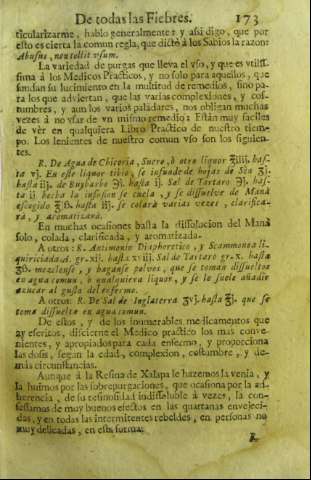 De todas las Fiebres. 173
ticularizarme, hablo generalmente: y assi digo, que por
esto es cierta la comun regla, que dictò à los Sabios la razon:
Abusus, non tollit usum.
La variedad de purgas que lleva el uso, y que es utilis-
sima à los Medicos Practicos, y no solo para aquellos, que
fundan su lucimiento en la multitud de remedios, sino pa-
ra los que advierten, que las varias complexiones, y cos-
tumbres, y aun los varios paladares, nos obligan muchas
vezes à no usar de un mismo remedio: Estàn muy faciles
de vèr en qualquiera Libro Practico de nuestro tiem-
po. Los lenientes de nuestro comun uso son los siguien-
tes.
R. De Agua de Chicoria, Suero, ò otro liquor ℥iiij. has-
ta vj. En este liquor tibio, se infunde de hojas de Sen ʒj.
hasta iij. de Ruybarbo ℈j. hasta ij. Sal de Tartaro ℈j. has-
ta ij hecha la infusion se cuela, y se dissuelve de Manà
escogido ℥ß. hasta iij. se colarà varias vezes, clarifica-
rà, y aromatizarà.
En muchas ocasiones basta la dissolucion del Manà
solo, colada, clarificada, y aromatizada.
A otros: R. Antimonio Diaphoretico, y Scammonea li-
quiriciada. gr. xij. hasta xviij. Sal de Tartaro gr. x. hasta
℈ß. mezclense, y haganse polvos, que se toman dissueltos
en agua comun, ò qualquiera liquor, y se le suele añadir
azucar al gusto del enfermo.
A otros: R. De Sal de Inglaterra ʒvj. hasta ℥j. que se
toma dissuelta en agua comun.
De estos, y de los inumerables medicamentos que
ay escritos, discierne el Medico practico los mas conve-
nientes, y apropiados para cada enfermo, y proporciona
las dosis, segun la edad, complexion, costumbre, y de-
màs circunstancias.
Aunque à la Resina de Xalapa le hazemos la venia, y
la huimos por las sobrepurgaciones, que ocasiona por la ad-
herencia, de su resinosidad indissoluble à vezes, la con-
fessamos de muy buenos efectos en las quartanas envejeci-
das, y en todas las intermitentes rebeldes, en personas no
muy delicadas, en esta forma:
R.